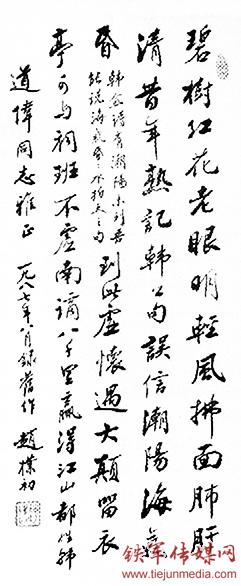 碧樹紅花老眼明輕風拂面肺肝
清昔年熟記韓公句誤信潮陽海氣
昏
韓公詩有潮陽未到吾
能說海氣昏昏水拍天之句
到此虛懷遇大顛留衣
亭可與祠班不虛南謫八千里贏得江山都姓韓
道偉同志雅正 一九八七年八月錄舊作 趙樸初
铁军传媒网
www.tiejunmedia.com